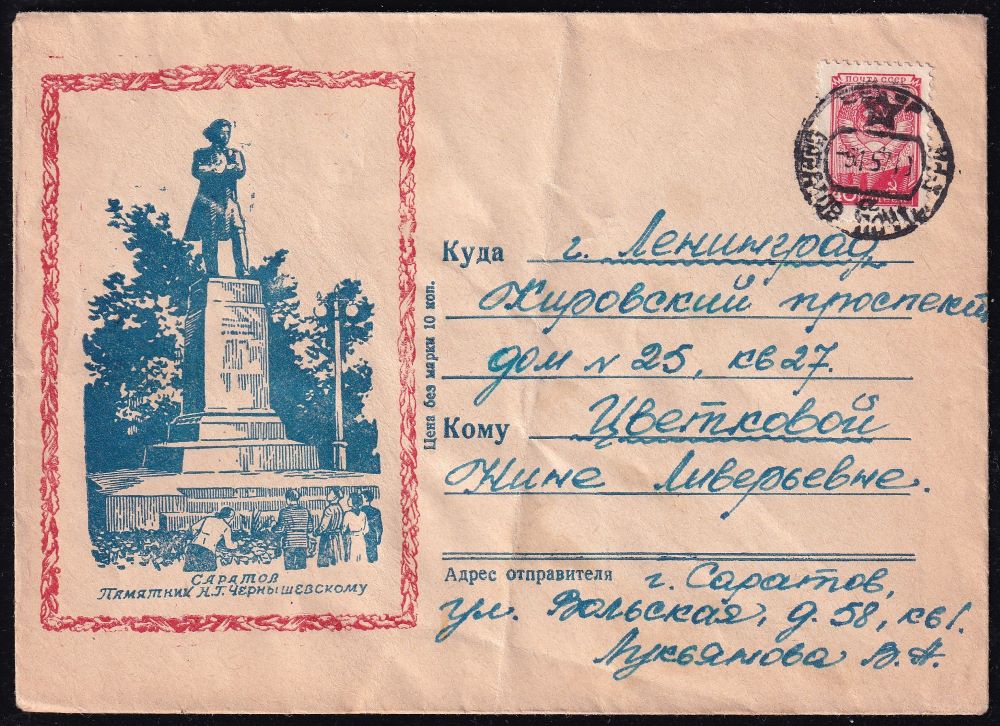 ПОЧТА СССР
Куда г. Ленинград
Кировский проспект
дом N 25, кв 27.
Цена без марки 10 коп.
Кому Цветковой
Нине Ливерьевне.
Адрес отправителя г. Саратов,
ул. Вольская, д. 58, кв 1.
Лукьянова В. А.
САРАТОВ
ПАМЯТНИК Н.Г. ЧЕРНЫШЕВСКОМУ